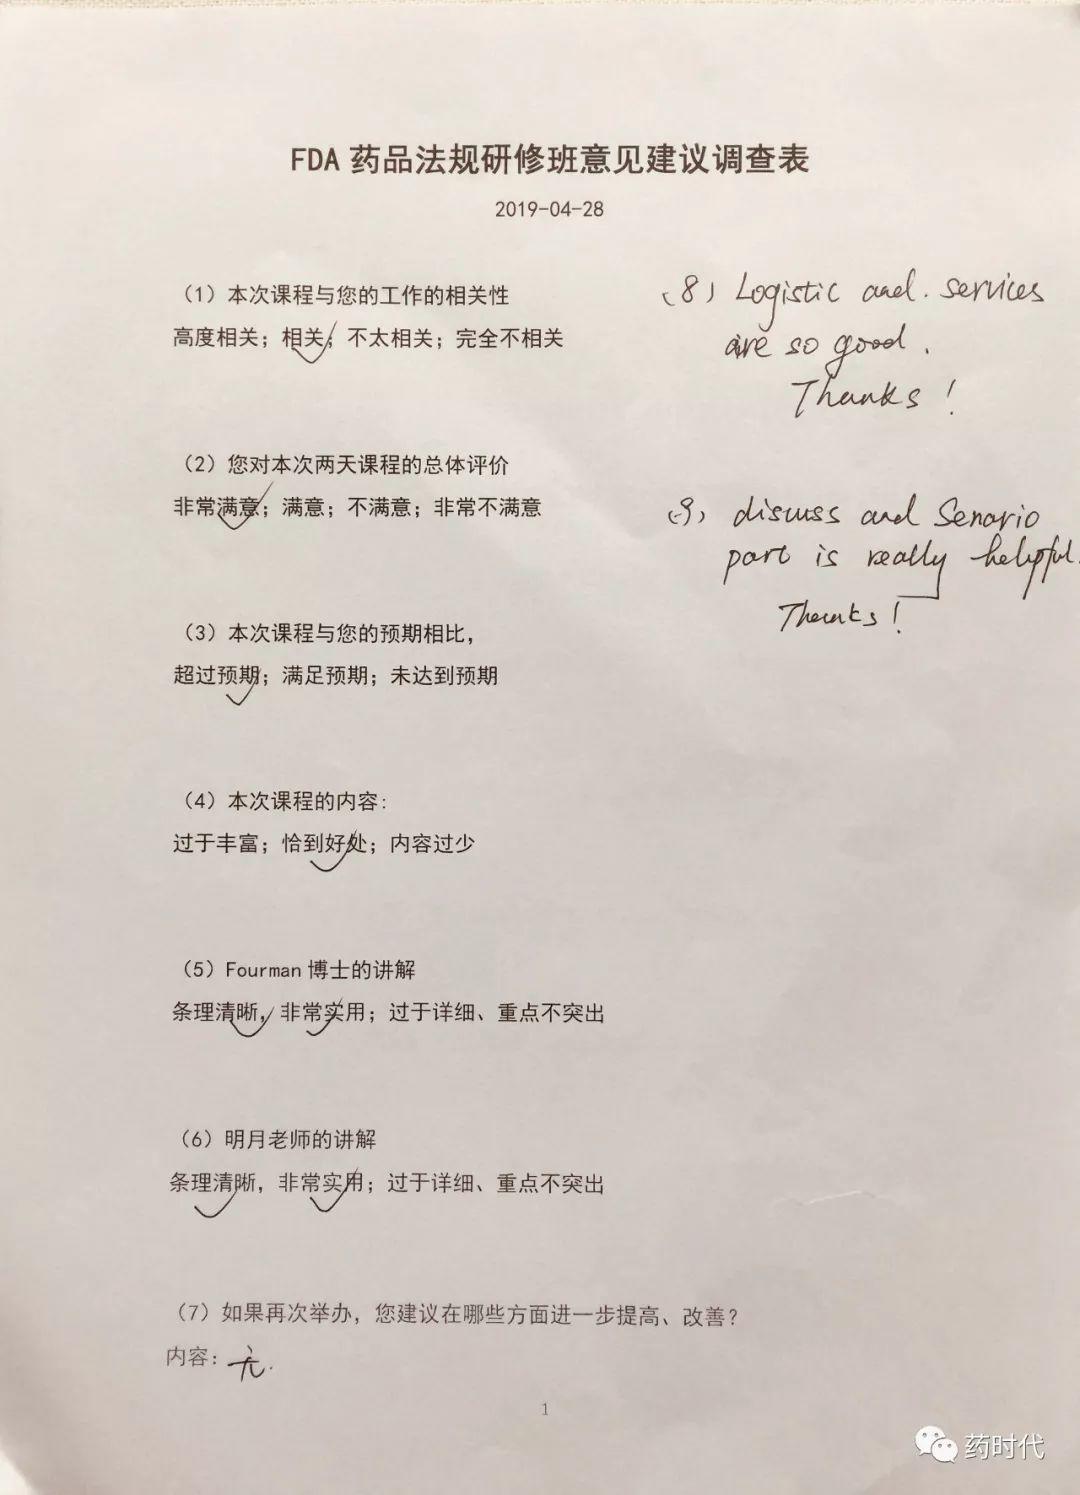 FDA 药品法规研修班意见建议调查表
2019-04-28
（1）本次课程与您的工作的相关性
高度相关；相关；不太相关；完全不相关
（2）您对本次两天课程的总体评价
非常满意；满意；不满意；非常不满意
（3）本次课程与您的预期相比，
超过预期；满足预期；未达到预期
（4）本次课程的内容：
过于丰富；恰到好处；内容过少
（5）Fourman 博士的讲解
条理清晰，非常实用；过于详细、重点不突出
（6）明月老师的讲解
条理清晰，非常实用；过于详细、重点不突出
（7）如果再次举办，您建议在哪些方面进一步提高、改善？
内容：无.
(8) Logistic and. services
are so good.
Thanks!
(9) discuss and Senario
part is really helpful.
Thanks!
1
药时代